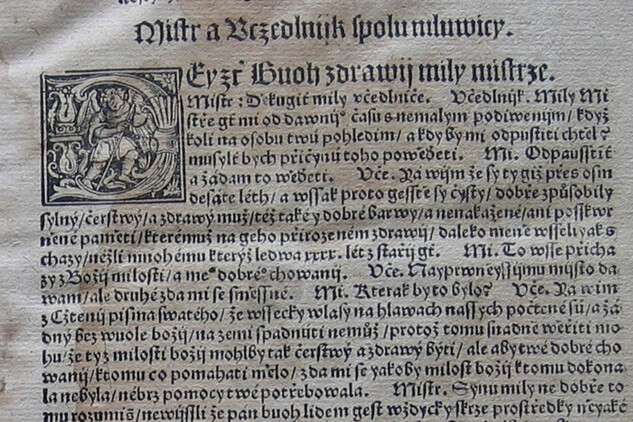 Mistr a Vczedlnijk spolu mluwicy.
Eyžť Buoh zdrawij mily mistrze.
Mistr: Děkugiť mily včedlniče. Včedlnijk. Mily Mi
stře gť mi od dawnijᵒ času s nemalym podiwenim/ když
koli na osobu twú pohledim/ a kdyby mi odpustiti chtěl?
musylť bych přičynu toho powědeti. Mi. Odpausstiť
a žádam to wědeti. Vče. Nawijm že sy ty giž přes osm
desáte léth/ a wssak proto gessťe sy čysty/ dobře způsobily
sylný/ čerstwý/ a zdrawý muž/ též také y dobré barwy/ a nenakažené/ ani posskwr
něné paměti/ kterémuž na geho přirozeném zdrawij/ daleko méně wsselijak s
chazy/ nežli mnohému kterýž ledwa xxxx. lét z stařij gt. Mi. To wsse přicha
zy z Božij milosti/ a méᵒ dobréᵒ chowanij. Vče. Nayprwněyssijmu mijsto da
wam/ ale druhé zda mi se směssné. Mi. Kterak by to bylo? Vče. Na wim
z Cžtenij pisma swatého/ že wssecky wlasy na hlawach nassych počtené sú/ a žá
dný bez wuole božij/ na zemi spadnúti nemůž/ protož tomu snadně wěřiti mo
hu/ že ty z milosti božij mohl by tak čerstwý a zdrawý býti/ ale aby twé dobré cho
wanij/ k tomu co pomahati mělo/ zda mi se yakoby milost božij k tomu dokona
la nebyla/ nébrz pomocy twé potřebowala. Mistr. Synu mily ne dobře to
mu rozumiš/ newijssli že pán buoh lidem gest wždycky skrze prostředky nějaké